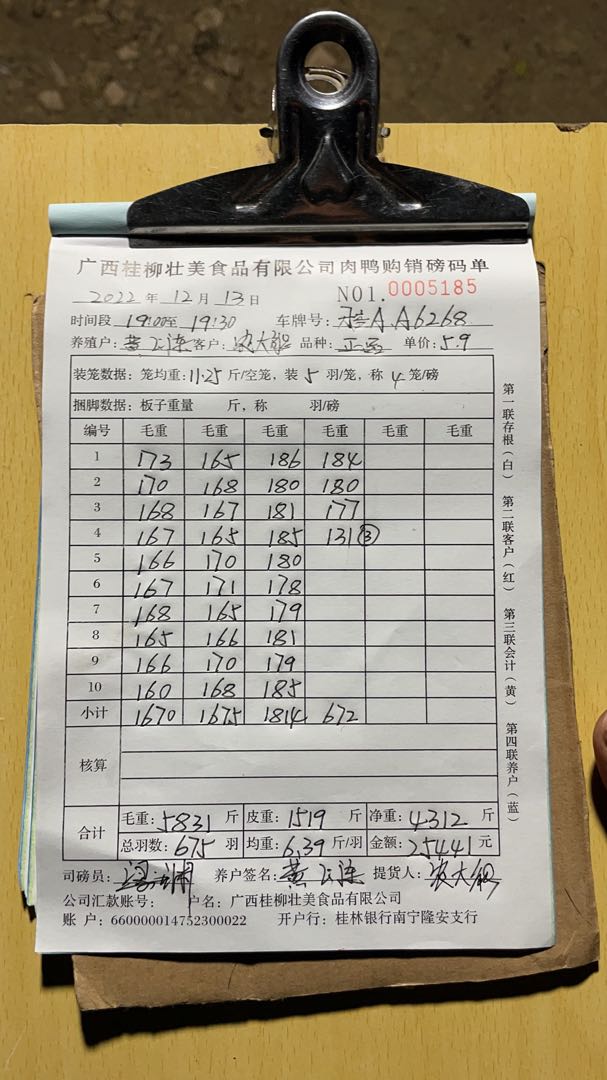 广西桂柳壮美食品有限公司肉鸭购销磅码单
2022 年 12 月 13 日 NO1. 0005185
时间段 19:00至 19:30 车牌号: 桂A.A6268
养殖户: 黄 客户: 农大 品种: 单价: 5.9
装笼数据: 笼均重: 11.25 斤/空笼, 装 5 羽/笼, 称 4 笼/磅
捆脚数据: 板子重量 斤, 称 羽/磅
编号 毛重 毛重 毛重 毛重 毛重 毛重
1 173 165 186 184
2 170 168 180 180
3 168 167 181 177
4 167 165 185 131③
5 166 170 180
6 167 171 178
7 168 165 179
8 165 166 181
9 166 170 179
10 160 168 185
小计 1670 1675 1814 672
核算
合计
毛重: 5831 斤 皮重: 1519 斤 净重: 4312 斤
总羽数: 675 羽 均重: 6.39 斤/羽 金额: 25441 元
司磅员: 养户签名: 黄 提货人: 农大
公司汇款账号: 户名: 广西桂柳壮美食品有限公司
账 户: 660000014752300022 开户行: 桂林银行南宁隆安支行
第一联存根(白) 第二联客户(红) 第三联会计(黄) 第四联养户(蓝)